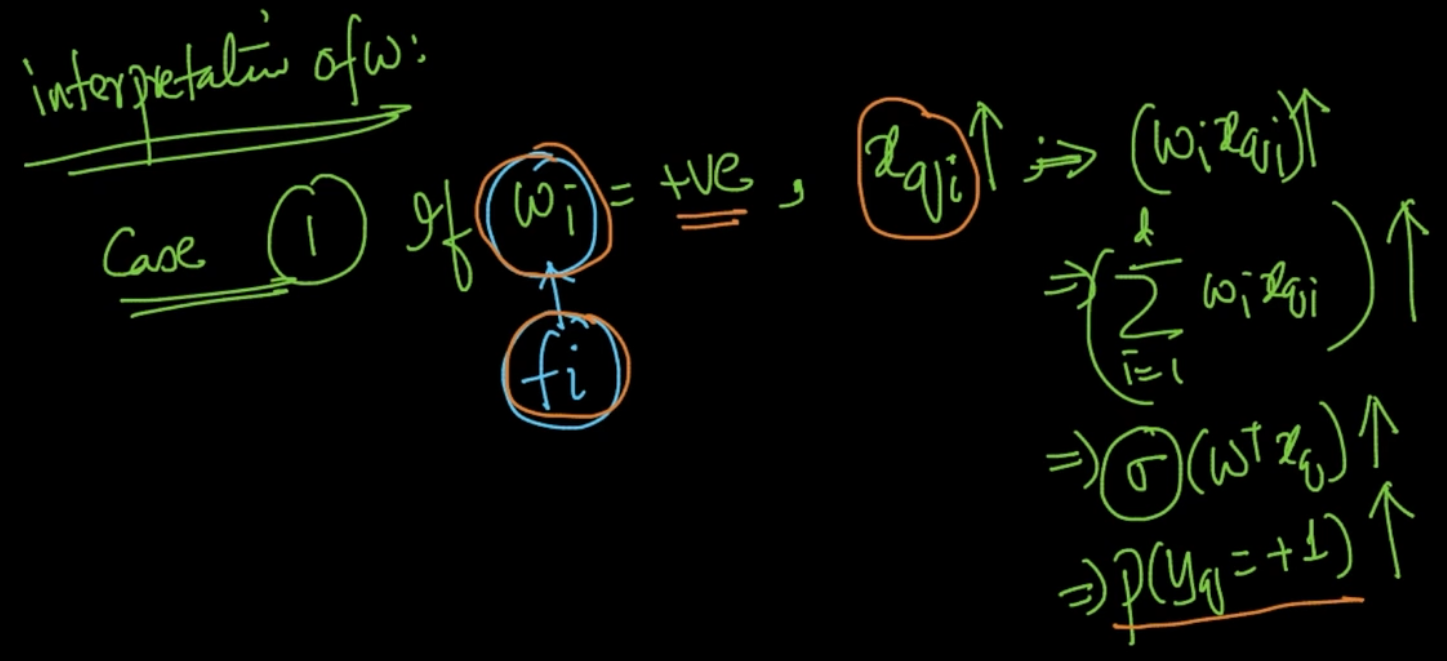 interpretation of w:
Case 1 If wᵢ = +ve , x_qi ↑ ⇒ (wᵢ x_qi) ↑
fi
⇒ (∑_{i=1}^{d} wᵢ x_qi) ↑
⇒ σ(wᵀ x_q) ↑
⇒ P(y_q = +1) ↑